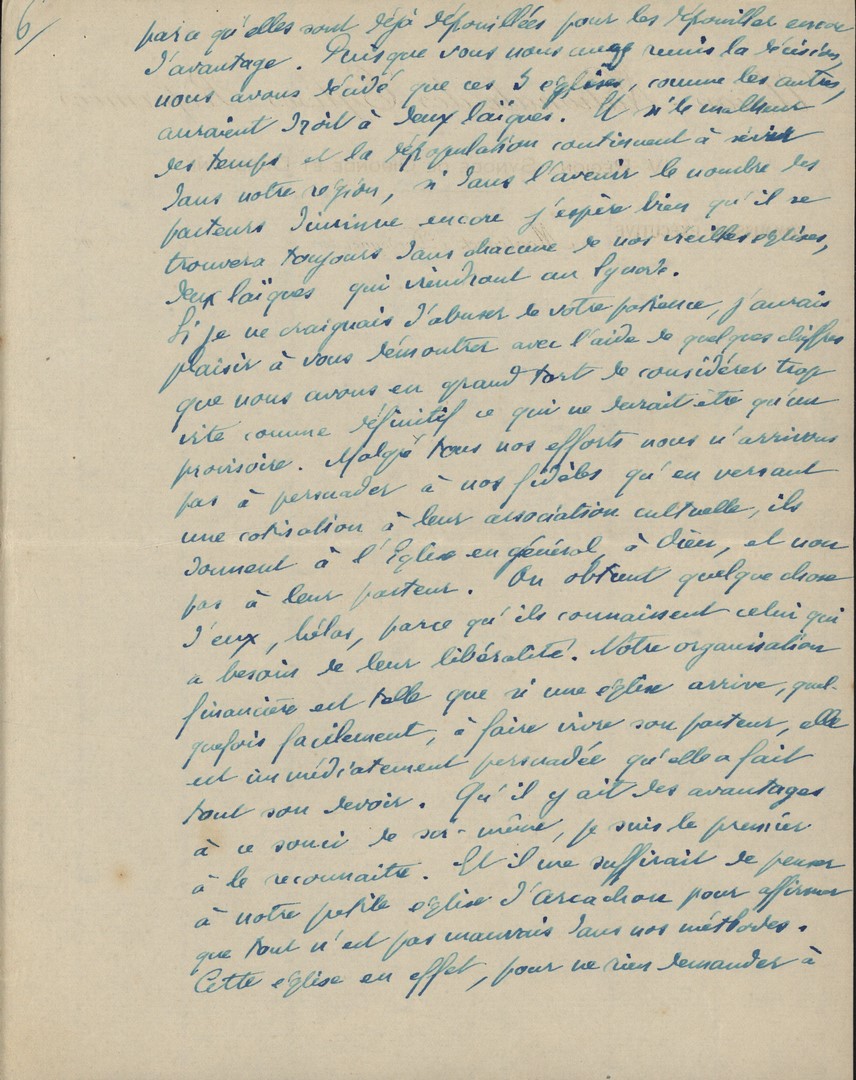 6/
parce qu'elles sont déjà dépouillées pour les dépouiller encore
d'avantage. Puisque vous nous avez remis la décision,
nous avons décidé que ces 5 églises, comme les autres,
auraient droit à deux laïques. Et si le malheur
des temps et la dépopulation continuent à sévir
dans notre région, si dans l'avenir le nombre des
pasteurs diminue encore j'espère bien qu'il se
trouvera toujours dans chacune de nos vieilles églises,
deux laïques qui viendront au Synode.
Si je ne craignais d'abuser de votre patience, j'aurais
plaisir à vous démontrer avec l'aide de quelques chiffres
que nous avons eu grand tort de considérer trop
vite comme définitif ce qui ne devait être qu'un
provisoire. Malgré tous nos efforts nous n'arrivons
pas à persuader à nos fidèles qu'en versant
une cotisation à leur association cultuelle, ils
donnent à l'Eglise en général, à Dieu, et non
pas à leur pasteur. On obtient quelque chose
d'eux, hélas, parce qu'ils connaissent celui qui
a besoin de leur libéralité. Notre organisation
financière est telle que si une église arrive, quel-
quefois facilement, à faire vivre son pasteur, elle
est immédiatement persuadée qu'elle a fait
tout son devoir. Qu'il y ait des avantages
à ce souci de soi-même, je suis le premier
à le reconnaitre. Et il me suffirait de penser
à notre petite église d'Arcachon pour affirmer
que tout n'est pas mauvais dans nos méthodes.
Cette église en effet, pour ne rien demander à